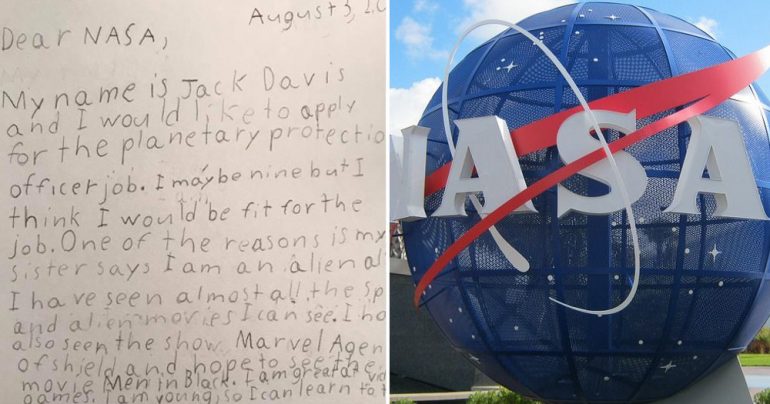 August 3, 20
Dear NASA,
My name is Jack Davis
and I would like to apply
for the planetary protectio
officer job. I may be nine but I
think I would be fit for the
job. One of the reasons is my
sister says I am an alien al
I have seen almost all the sp
and alien movies I can see. I ha
also seen the show Marvel Agen
of shield and hope to see the
movie Men in Black. I am great at vid
games. I am young, so I can learn to t
NASA